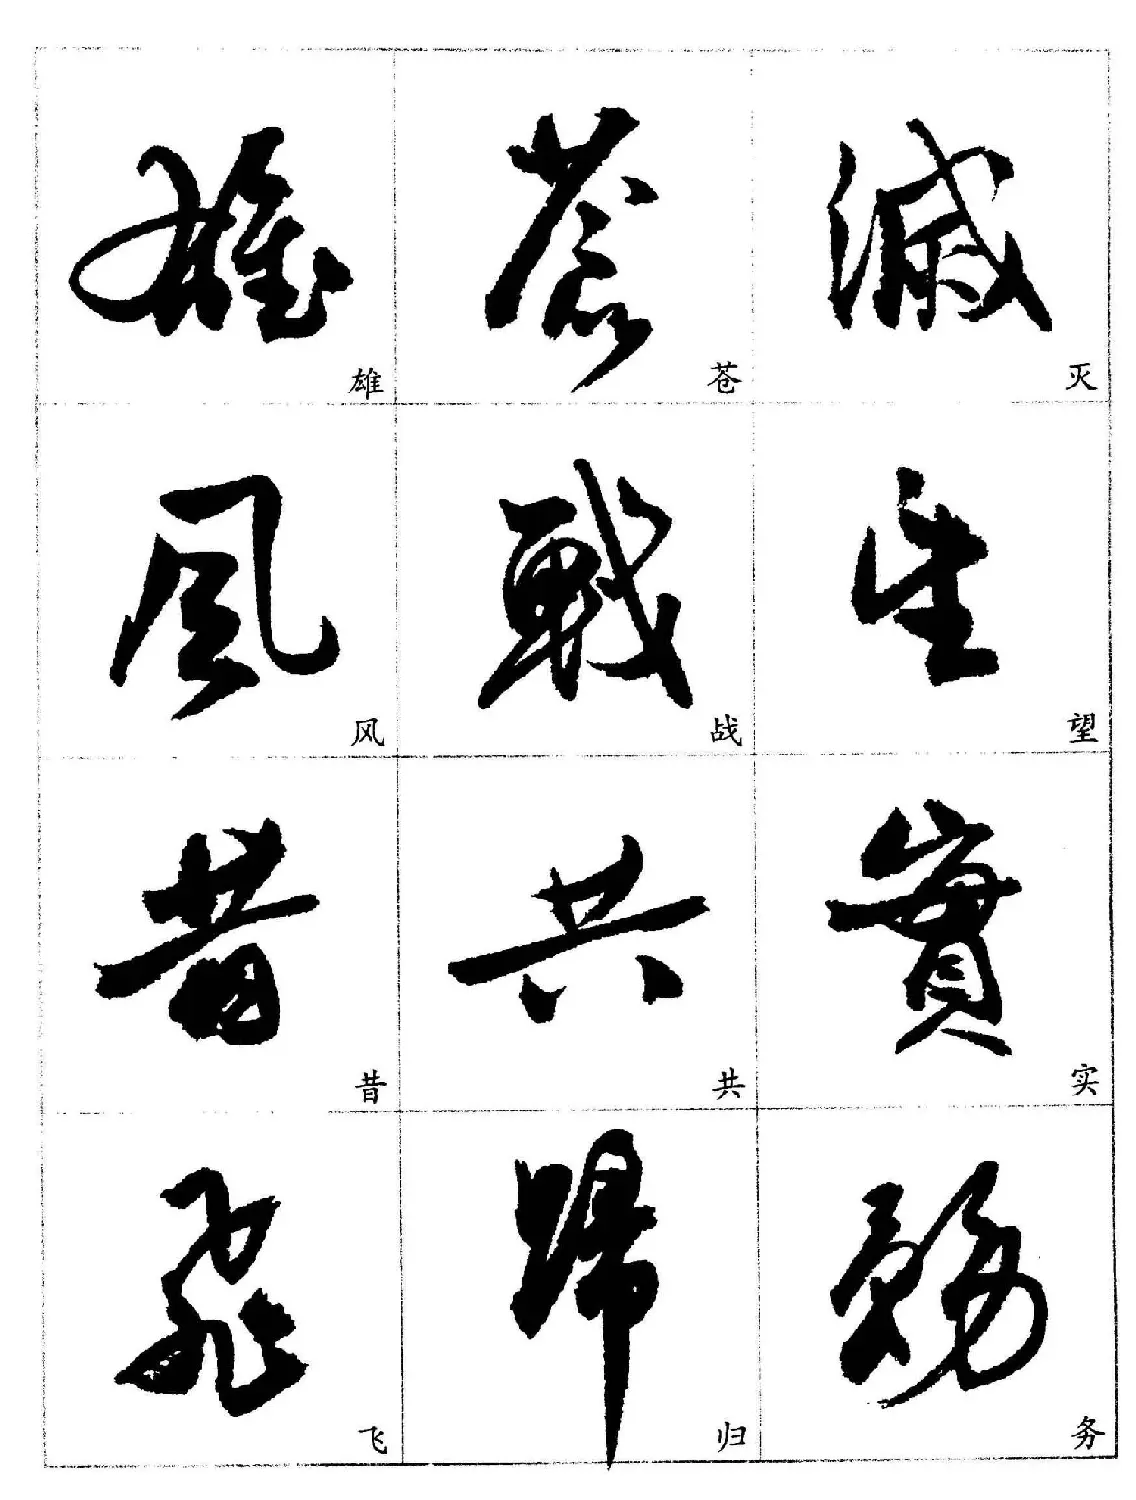 雄 蒼 滅
雄 苍 灭
風 戰 望
风 战 望
昔 共 實
昔 共 实
飛 歸 務
飞 归 务